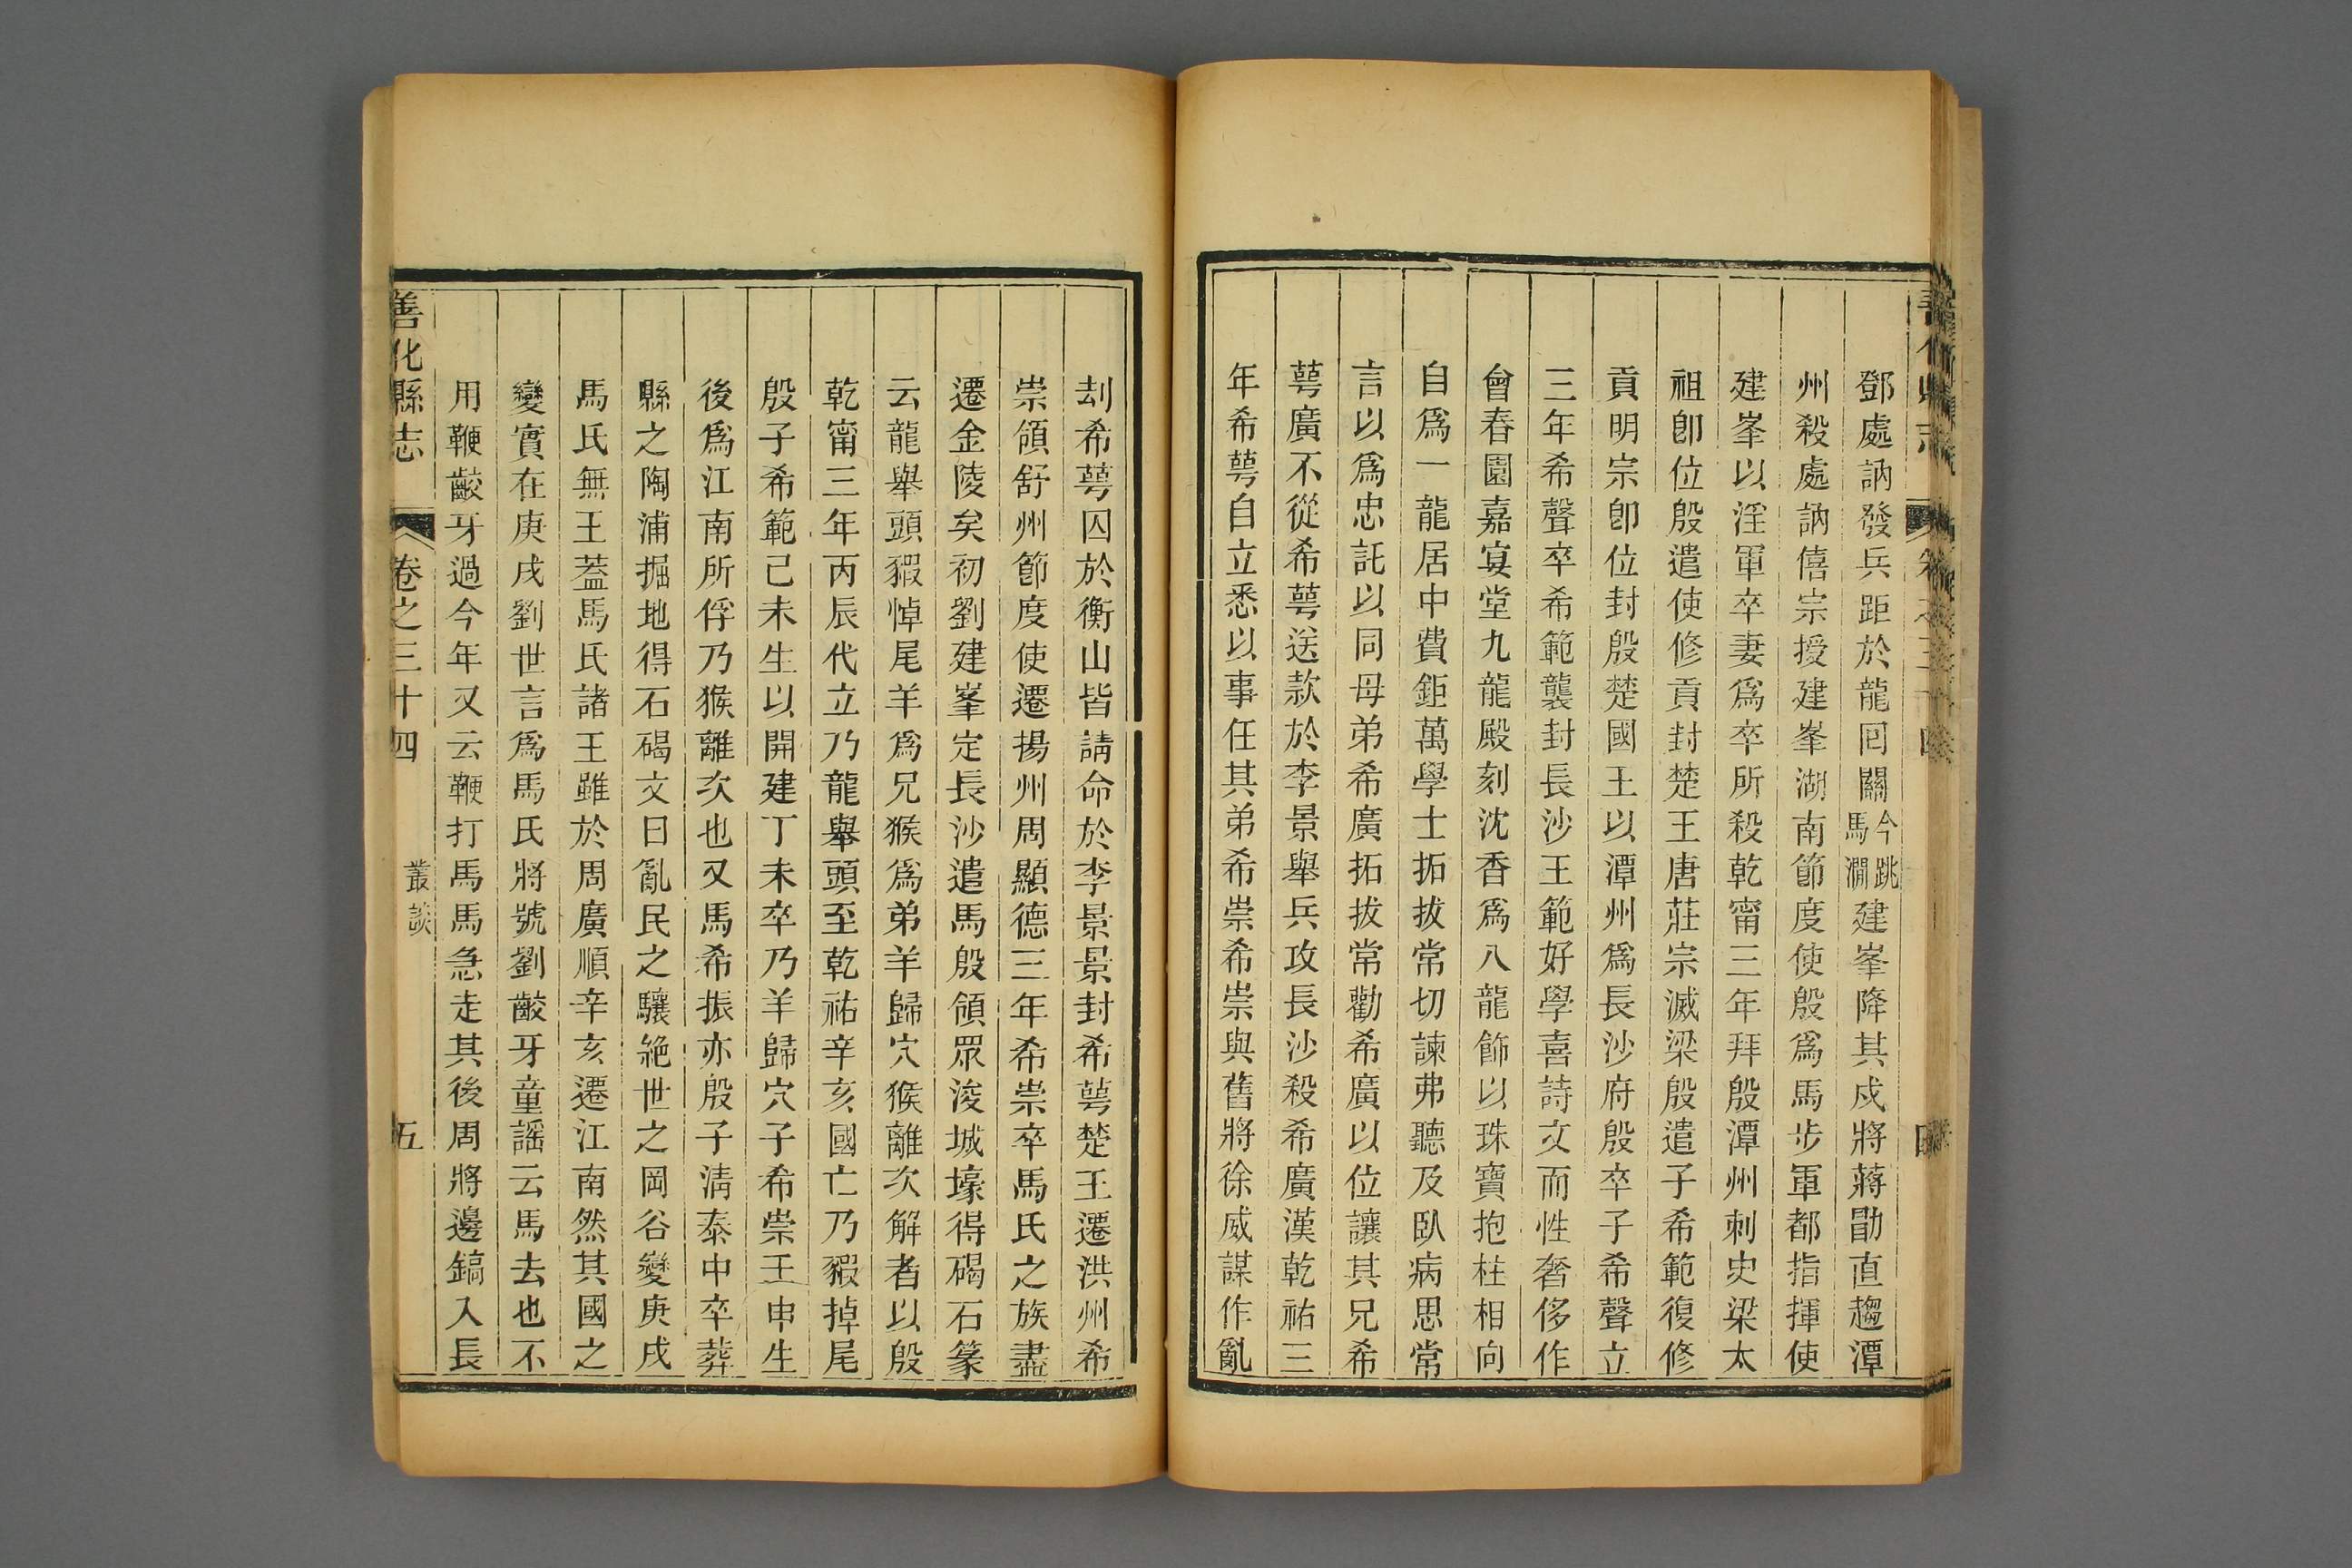 鄧處訥發兵距於龍回關今跳馬澗建峯降其戍將蔣勛直趨潭
州殺處訥僖宗授建峯湖南節度使殷爲馬步軍都指揮使
建峯以淫軍卒妻爲卒所殺乾甯三年拜殷潭州刺史梁太
祖卽位殷遣使修貢封楚王唐莊宗滅梁殷遣子希範復修
貢明宗卽位封殷楚國王以潭州爲長沙府殷卒子希聲立
三年希聲卒希範襲封長沙王範好學喜詩文而性奢侈作
會春園嘉宴堂九龍殿刻沈香爲八龍飾以珠寶抱柱相向
自爲一龍居中費鉅萬學士拓拔常切諫弗聽及臥病思常
言以爲忠託以同母弟希廣拓拔常勸希廣以位讓其兄希
萼廣不從希萼送款於李景舉兵攻長沙殺希廣漢乾祐三
年希萼自立悉以事任其弟希崇希崇與舊將徐威謀作亂
刦希萼囚於衡山皆請命於李景景封希萼楚王遷洪州希
崇領舒州節度使遷揚州周顯德三年希崇卒馬氏之族盡
遷金陵矣初劉建峯定長沙遣馬殷領眾浚城壕得碣石篆
云龍舉頭猳悼尾羊爲兄猴爲弟羊歸穴猴離次解者以殷
乾甯三年丙辰代立乃龍舉頭至乾祐辛亥國亡乃猳掉尾
殷子希範己未生以開建丁未卒乃羊歸穴子希崇壬申生
後爲江南所俘乃猴離次也又馬希振亦殷子淸泰中卒葬
縣之陶浦掘地得石碣文曰亂民之驤絶世之岡谷變庚戌
馬氏無王葢馬氏諸王雖於周廣順辛亥遷江南然其國之
變實在庚戌劉世言爲馬氏將號劉齩牙童謠云馬去也不
用鞭齩牙過今年又云鞭打馬馬急走其後周將邊鎬入長
善化縣志 卷之三十四 叢談 五